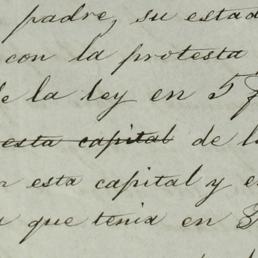 padre, su estad
con la protesta
de la ley en 5
esta capital de l
esta capital y e
que tenia en